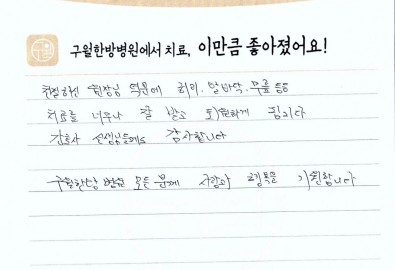 구월한방병원에서 치료, 이만큼 좋아졌어요!
친절하신 원장님 덕분에 허리. 발바닥. 무릎 등등
치료를 너무나 잘 받고 퇴원하게 됩니다
간호사 선생님들께도 감사합니다
구월한방 병원 모든 분께 사랑과 행복을 기원합니다